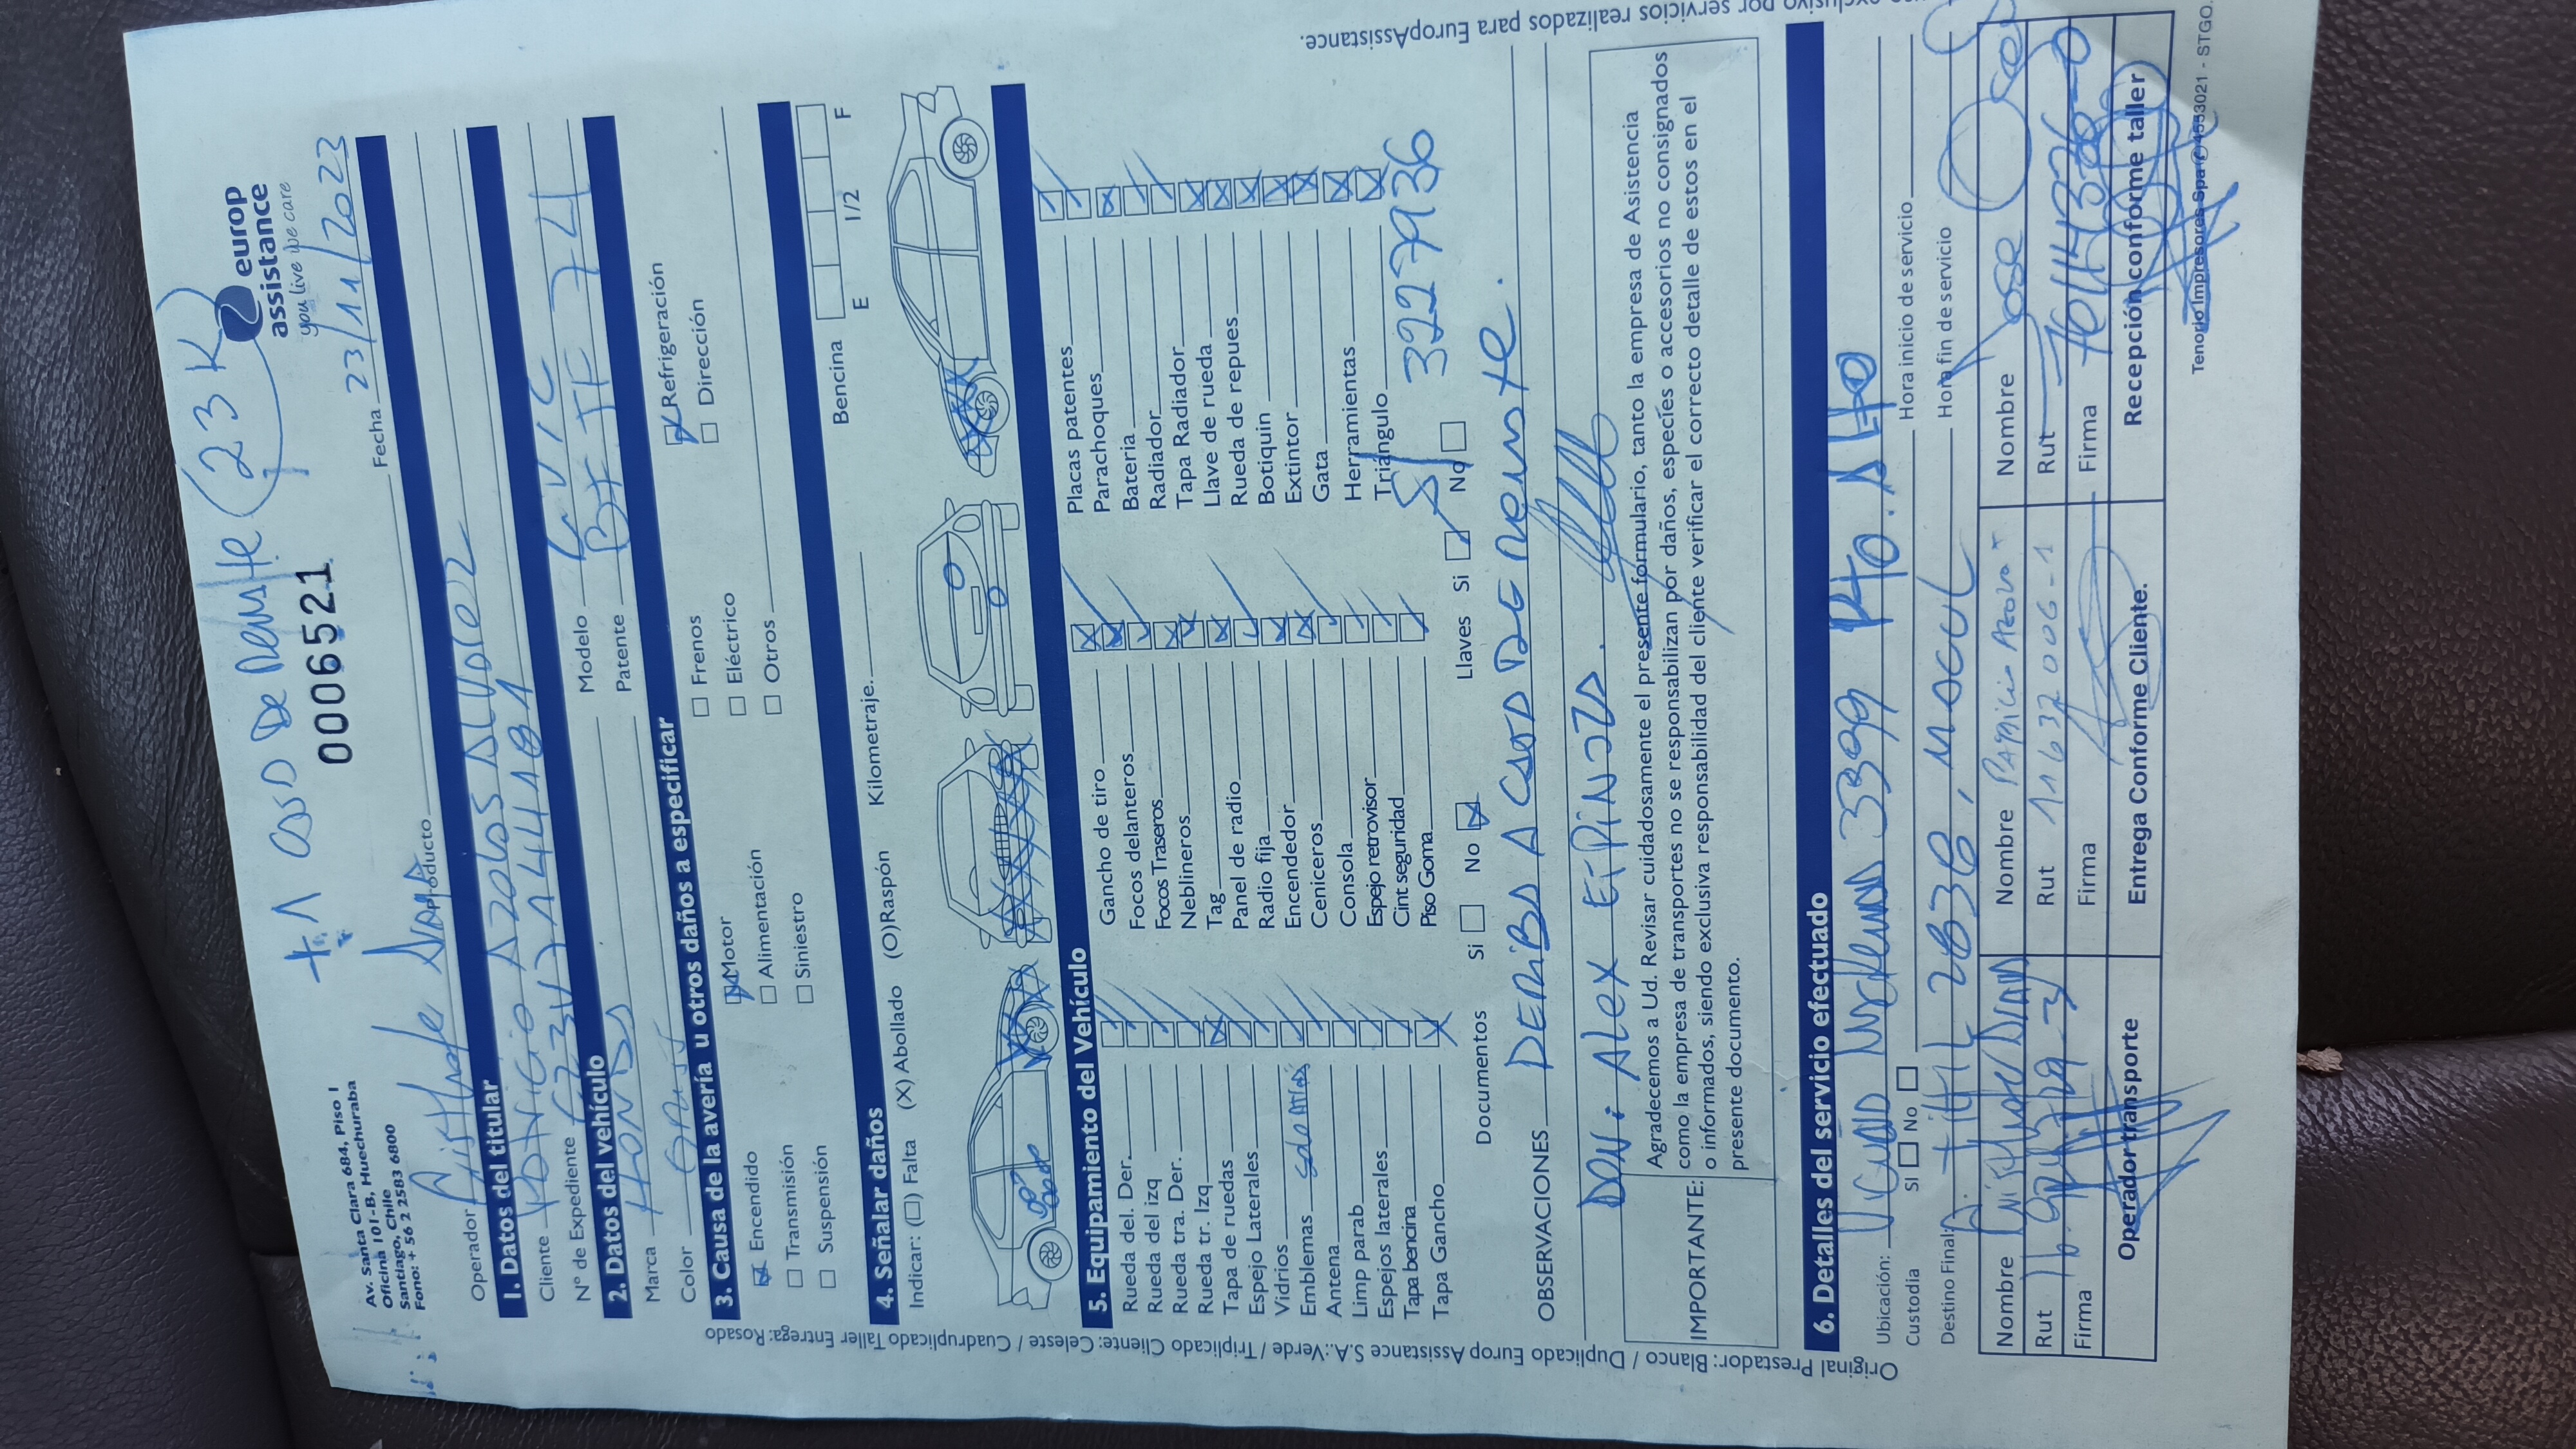 +1 CASO De Renste (23 K)
Av. Santa Clara 684, Piso 1
Oficina 101-B, Huechuraba
Santiago, Chile
Fono: + 56 2 2583 6800
0006521
europ
assistance
you live we care
Operador Producto Fecha 23/11/2023
1. Datos del titular
Cliente Patricio Azolas Alvarez
N° de Expediente Modelo CIVIC
2. Datos del vehículo
Marca HONDA Patente BX JF 74
Color Gris
3. Causa de la avería u otros daños a especificar
Encendido Motor Frenos Refrigeración
Transmisión Alimentación Eléctrico Dirección
Suspensión Siniestro Otros
4. Señalar daños
Indicar: (☐) Falta (X) Abollado (O)Raspón Kilometraje. Bencina
E 1/2 F
5. Equipamiento del Vehículo
Rueda del. Der. Gancho de tiro Placas patentes
Rueda del izq Focos delanteros Parachoques
Rueda tra. Der. Focos Traseros Bateria
Rueda tr. Izq Neblineros Radiador
Tapa de ruedas Tag Tapa Radiador
Espejo Laterales Panel de radio Llave de rueda
Vidrios Radio fija Rueda de repues
Emblemas solo atras Encendedor Botiquin
Antena Ceniceros Extintor
Limp parab Consola Gata
Espejos laterales Espejo retrovisor Herramientas
Tapa bencina Cint seguridad Triángulo
Tapa Gancho Piso Goma
Documentos Si No Llaves Si No 32279136
OBSERVACIONES DERIBA A CASO DE Renste.
DON: Alex EspiNozA.
IMPORTANTE: Agradecemos a Ud. Revisar cuidadosamente el presente formulario, tanto la empresa de Asistencia
como la empresa de transportes no se responsabilizan por daños, especíes o accesorios no consignados
o informados, siendo exclusiva responsabilidad del cliente verificar el correcto detalle de estos en el
presente documento.
6. Detalles del servicio efectuado
Ubicación: Vicuña Mackenna 3399 Pto. Alto
Custodia SI No Hora inicio de servicio
Destino Final: A. tiltil 2838, MACUL Hora fin de servicio
Nombre Nombre Patricio Azolas Nombre Jose
Rut Rut 11632006-1 Rut
Firma Firma Firma
Operador transporte Entrega Conforme Cliente. Recepción conforme taller
Tenorio Impresores Spa 4553021 - STGO.
Original Prestador: Blanco / Duplicado Europ Assistance S.A.:Verde / Triplicado Cliente: Celeste / Cuadruplicado Taller Entrega: Rosado
exclusivo por servicios realizados para EuropAssistance.